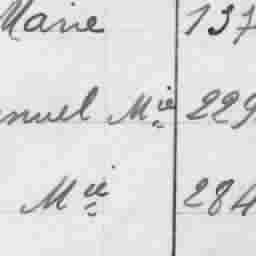 Marie 137
nuel Mie 229
Mie 284